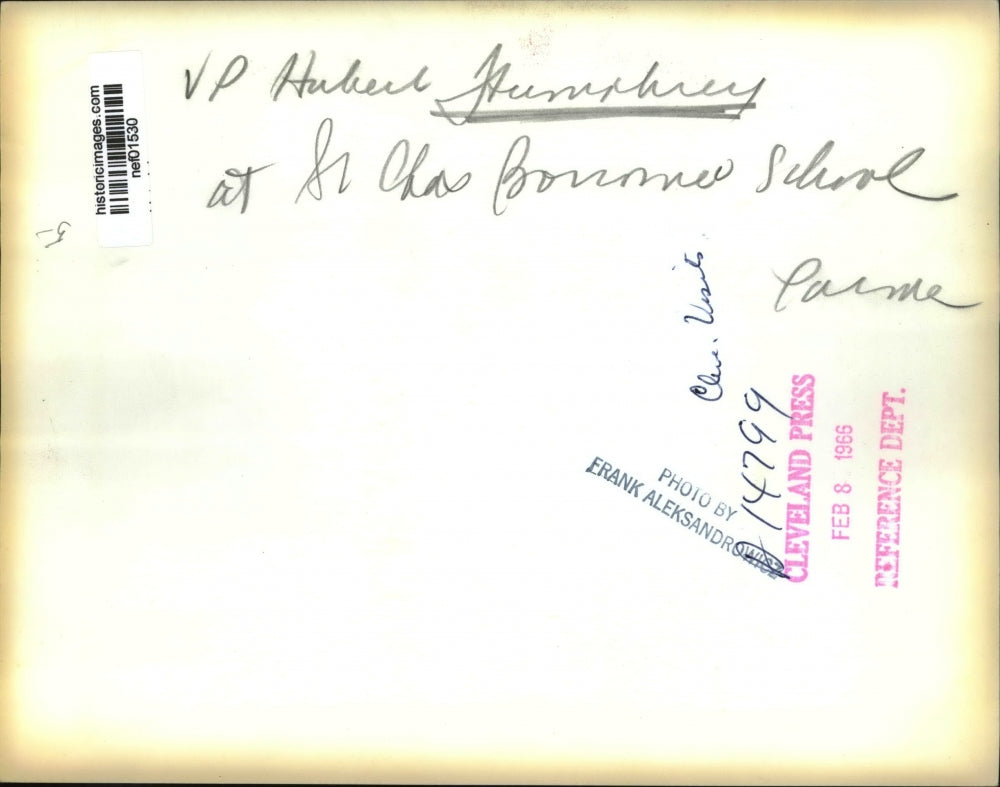 VP Hubert Humphrey
at St Chas Borromeo School
Parma
historicimages.com
nef01530
Cleve. Visits.
14799
PHOTO BY
FRANK ALEKSANDROWICZ
CLEVELAND PRESS
FEB 8 1966
REFERENCE DEPT.